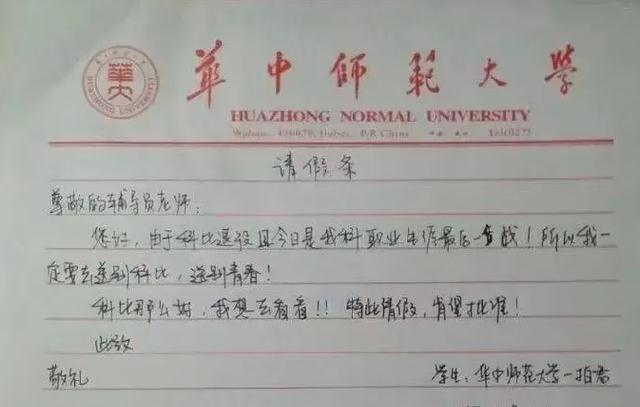 華中師範大學
HUAZHONG NORMAL UNIVERSITY
Wuhan, 430079, Hubei, P.R.China 中国 武汉 Tel(027)
请假条
尊敬的辅导员老师：
您好，由于科比退役且今日是我科职业生涯最后一战！所以我一
定要去送别科比，送别青春！
科比那么好，我想去看看！！特此请假，肯望批准！
此致
敬礼
学生：华中师范大学一拍者